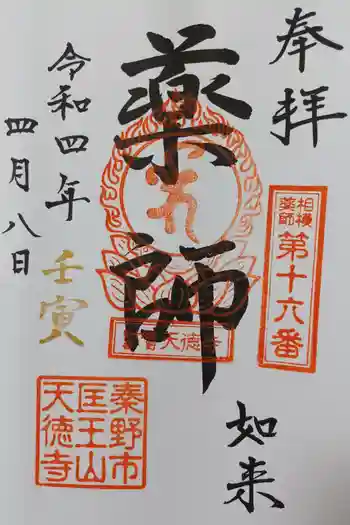 奉拝
相模
薬師
第十六番
薬師
如来
令和四年
四月八日
壬寅
天徳寺
秦野市
匡王山
天徳寺